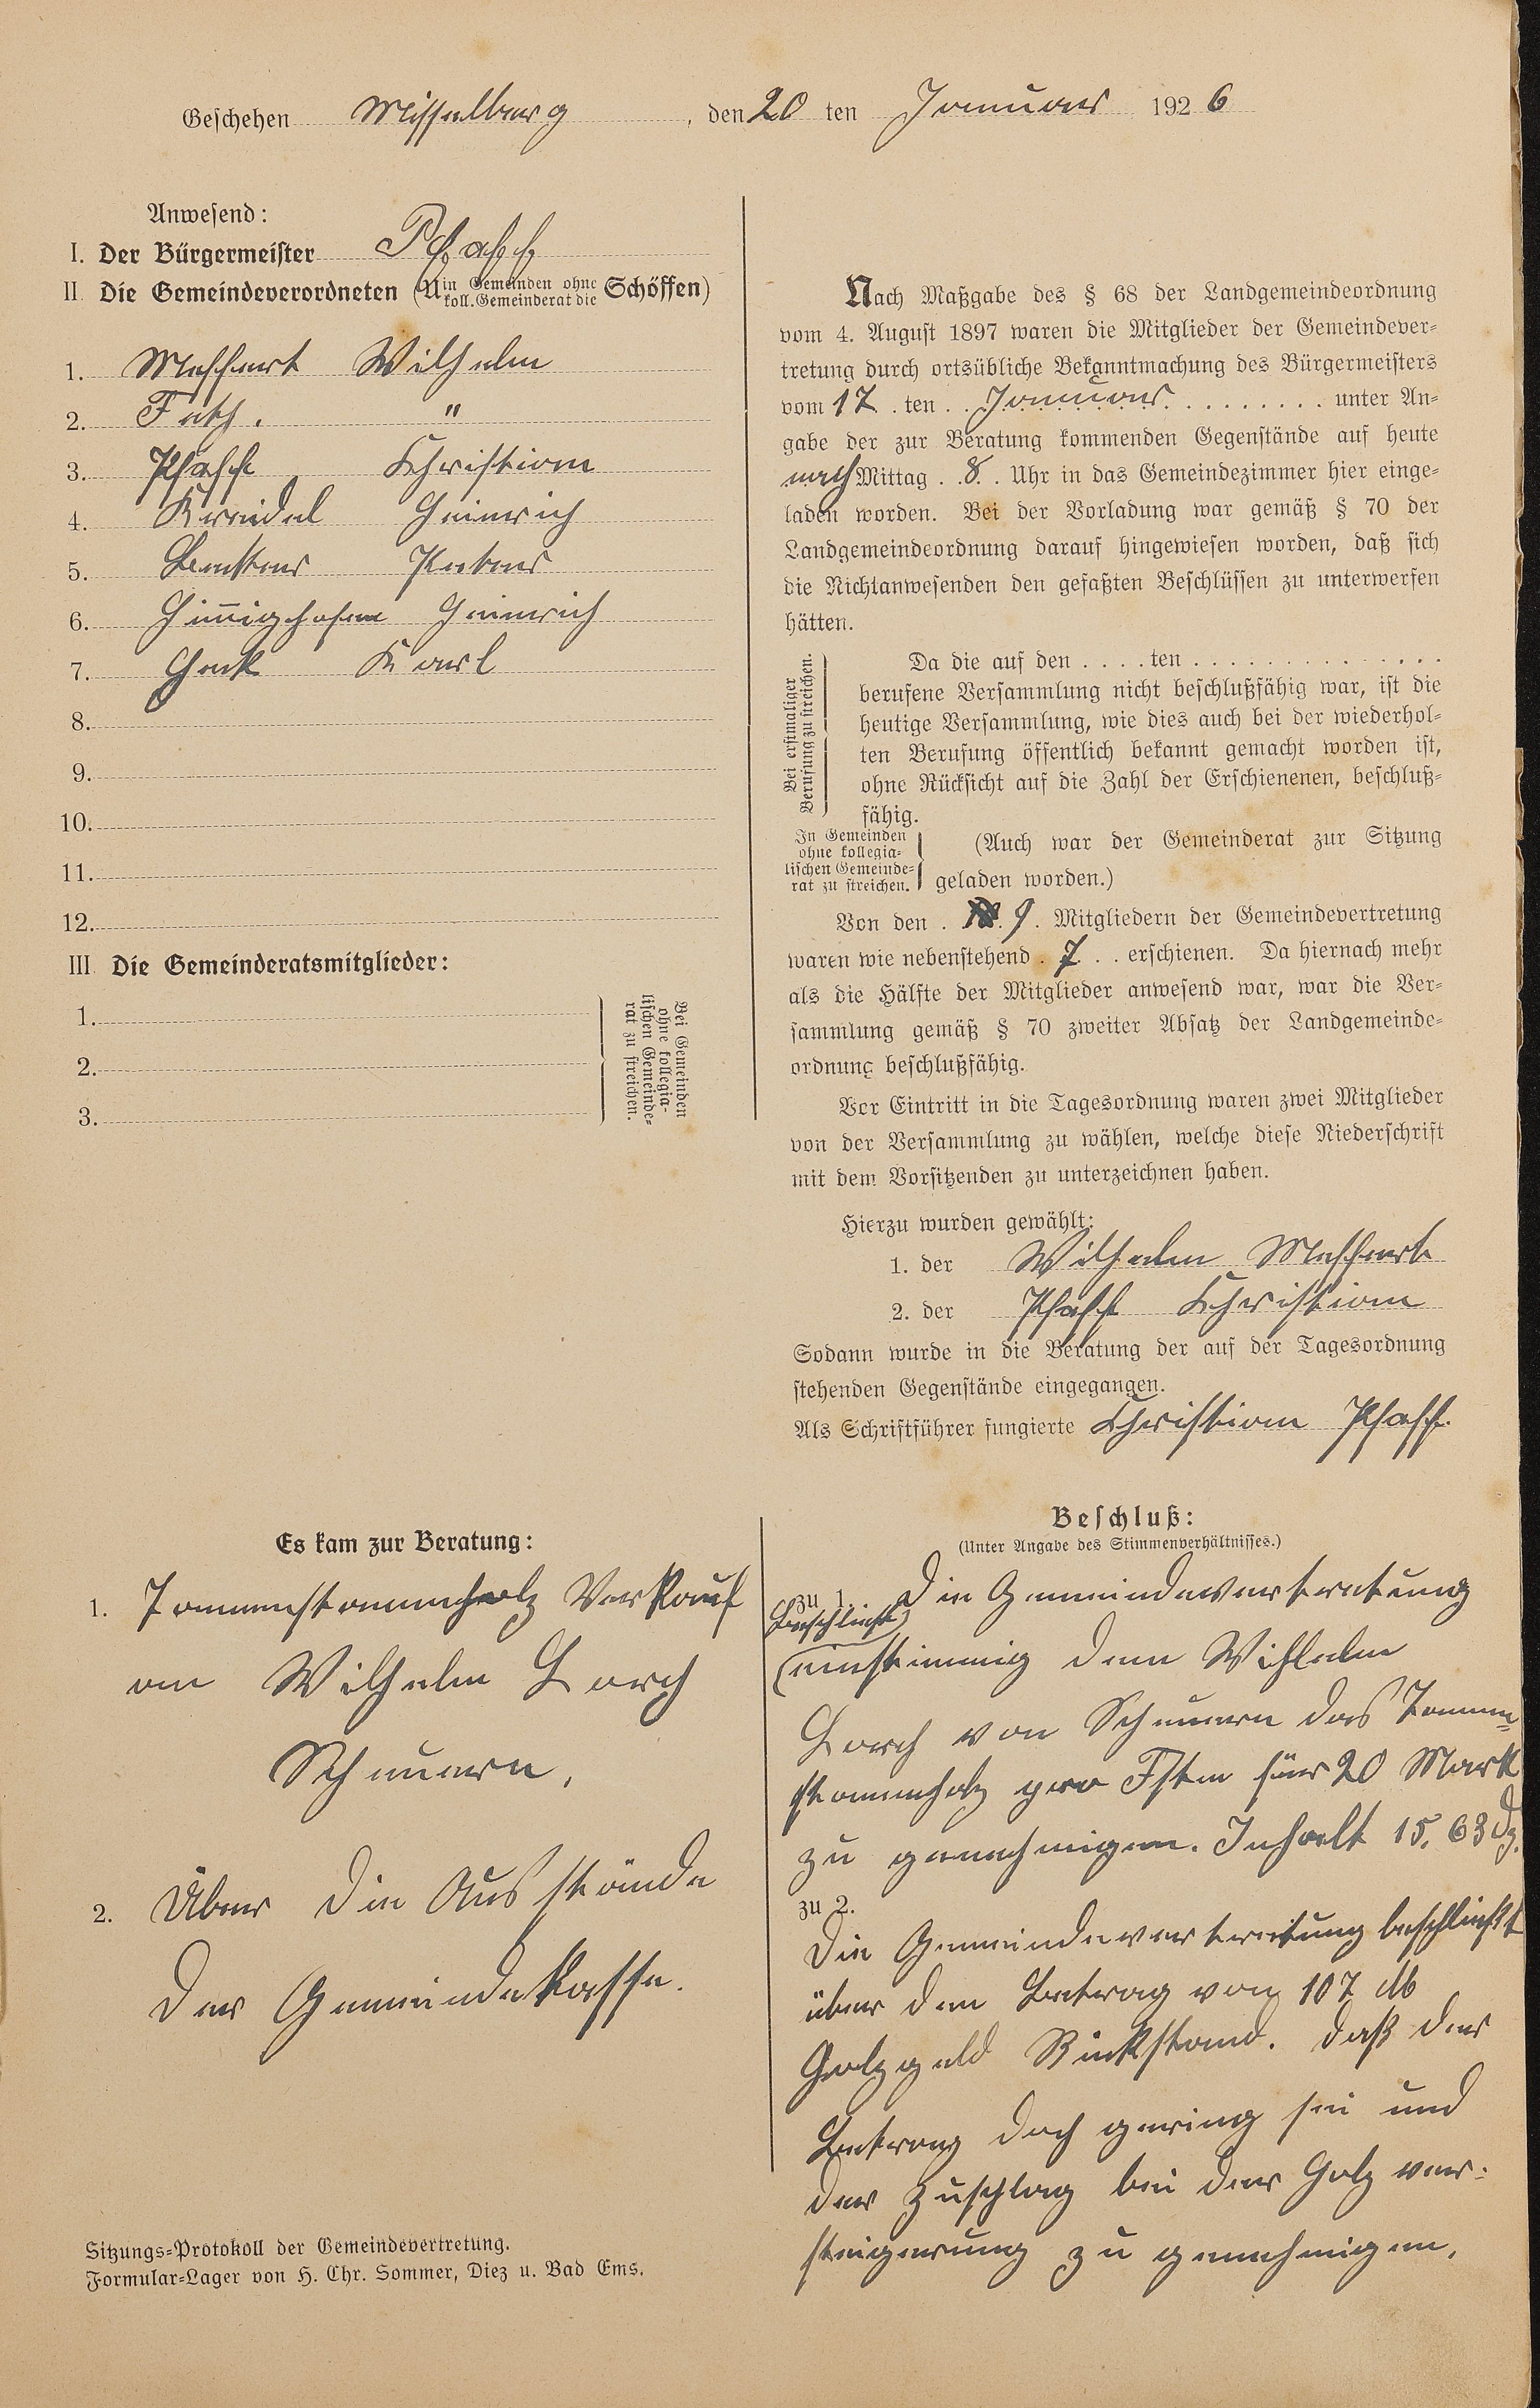 Geschehen Misselberg, den 20 ten Januar 1926
Anwesend:
I. Der Bürgermeister Pfaff
II. Die Gemeindeverordneten (u. in Gemeinden ohne koll. Gemeinderat die Schöffen)
1. Meffert Wilhelm
2. Fath. "
3. Pfaff Christian
4. Kreidel Heinrich
5. Peter
6. Himmighofen Heinrich
7. Karl
8.
9.
10.
11.
12.
III. Die Gemeinderatsmitglieder:
1.
2.
3.
Bei Gemeinden
ohne kollegia-
lischen Gemeinde-
rat zu streichen.
Nach Maßgabe des § 68 der Landgemeindeordnung
vom 4. August 1897 waren die Mitglieder der Gemeindever-
tretung durch ortsübliche Bekanntmachung des Bürgermeisters
vom 17. ten Januar unter An-
gabe der zur Beratung kommenden Gegenstände auf heute
nach Mittag 8. Uhr in das Gemeindezimmer hier einge-
laden worden. Bei der Vorladung war gemäß § 70 der
Landgemeindeordnung darauf hingewiesen worden, daß sich
die Nichtanwesenden den gefaßten Beschlüssen zu unterwerfen
hätten.
Bei erstmaliger
Berufung zu streichen.
Da die auf den ....ten ..............
berufene Versammlung nicht beschlußfähig war, ist die
heutige Versammlung, wie dies auch bei der wiederhol-
ten Berufung öffentlich bekannt gemacht worden ist,
ohne Rücksicht auf die Zahl der Erschienenen, beschluß-
fähig.
In Gemeinden
ohne kollegia-
lischen Gemeinde-
rat zu streichen.
(Auch war der Gemeinderat zur Sitzung
geladen worden.)
Von den 9. Mitgliedern der Gemeindevertretung
waren wie nebenstehend 7 erschienen. Da hiernach mehr
als die Hälfte der Mitglieder anwesend war, war die Ver-
sammlung gemäß § 70 zweiter Absatz der Landgemeinde-
ordnung beschlußfähig.
Vor Eintritt in die Tagesordnung waren zwei Mitglieder
von der Versammlung zu wählen, welche diese Niederschrift
mit dem Vorsitzenden zu unterzeichnen haben.
Hierzu wurden gewählt:
1. der Wilhelm Meffert
2. der Pfaff Christian
Sodann wurde in die Beratung der auf der Tagesordnung
stehenden Gegenstände eingegangen.
Als Schriftführer fungierte Christian Pfaff.
Es kam zur Beratung:
1. Tannenstammholz Verkauf
an Wilhelm Lorch
Scheuern.
2. Über die Ausstände
der Gemeindekasse.
Beschluß:
(Unter Angabe des Stimmenverhältnisses.)
zu 1. Die Gemeindevertretung
Beschließt
einstimmig dem Wilhelm
Lorch von Scheuern das Tannen-
stammholz pro Fstm für 20 Mark
zu genehmigen. Inhalt 15,63
zu 2.
Die Gemeindevertretung beschließt
über den Betrag von 107 M
Holzgeld Rückstand. Daß der
Betrag doch gering sei und
der Zuschlag bei der Holz ver-
steigerung zu genehmigen.
Sitzungs-Protokoll der Gemeindevertretung.
Formular-Lager von H. Chr. Sommer, Diez u. Bad Ems.